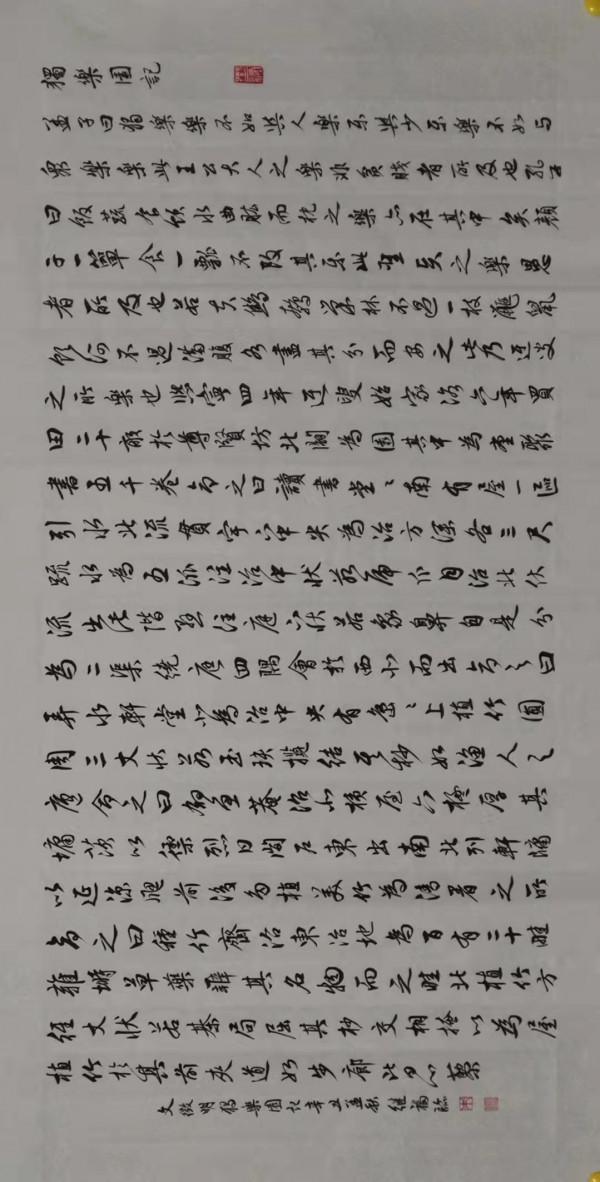 獨樂園記
孟子曰獨樂樂不如與人樂樂與少樂樂不如與
衆樂樂此王公大人之樂非貧賤者所及也孔子
曰飯蔬食飲水曲肱而枕之樂亦在其中矣顏
子一簞食一瓢不改其樂此聖賢之樂愚
者所及也若夫鷦鷯巢林不過一枝鼴鼠
飲河不過滿腹各盡其分而安之此乃迂叟
之所樂也熙寧四年迂叟始家洛六年買
田二十畝於尊賢坊北闢為園其中為堂聚
書五千卷命之曰讀書堂堂南有屋一區
引水北流貫宇下中央為沼方深各三尺
疏水為五派注沼中狀若虎爪自沼北伏
流出北階懸注庭下狀若象鼻自是分
為二渠繞庭四隅會於西北而出命之曰
弄水軒堂北為沼中央有島島上植竹圓
周三丈狀若玉玦攬結其杪如漁人之
廬命之曰釣魚菴沼北橫屋六楹厚其
墉茨以禦烈日開戶東出南北列軒牖
以延涼颸前後多植美竹為清暑之所
命之曰種竹齋沼東治地為百有二十畦
雜蒔草藥辨其名物而之畦北植竹方
徑丈狀若棊局屈其杪交相掩以為屋
植竹於其前夾道如步廊
文徵明獨樂園記辛丑孟秋